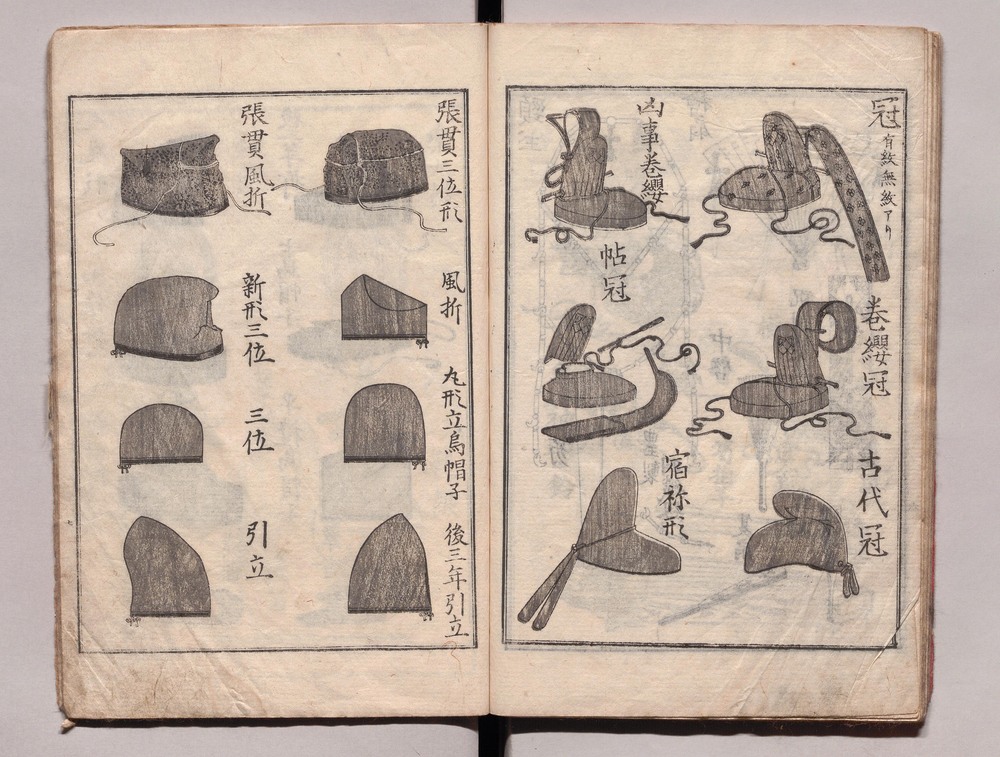 冠 有紋無紋アリ
凶事巻纓
巻纓冠
帖冠
古代冠
宿祢形
張貫三位形
張貫風折
風折
新形三位
丸形立烏帽子
三位
後三年引立
引立